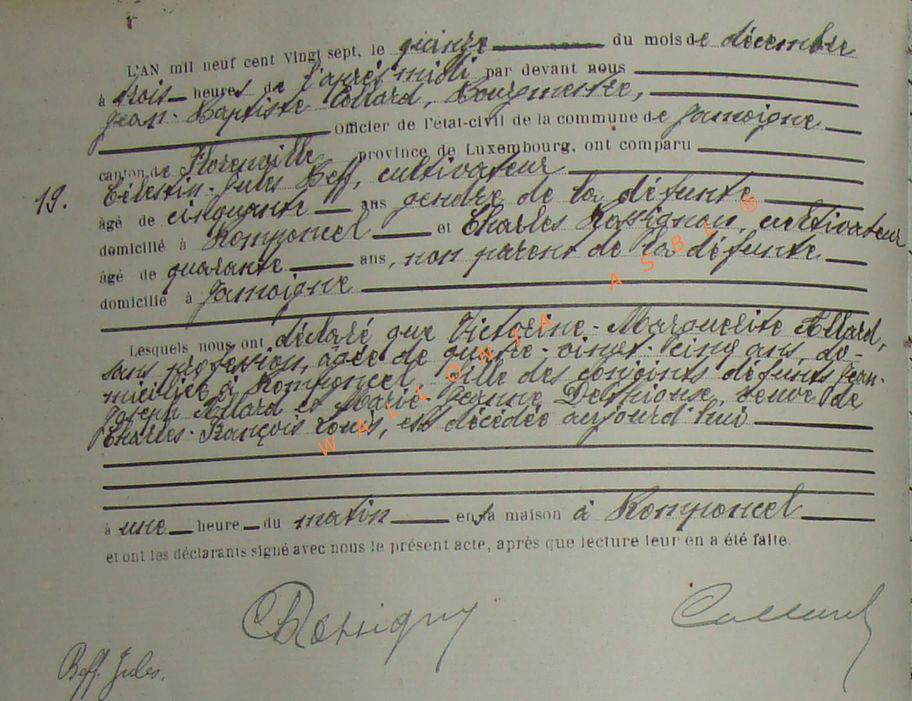 L'AN mil neuf cent vingt sept, le quinze du mois de décembre
à trois heures de l'après midi par devant nous
Jean-Baptiste Collard, Bourgmestre,
Officier de l'état-civil de la commune de Jamoigne
canton de Florenville province de Luxembourg, ont comparu
19. Célestin-Jules Beff, cultivateur
âgé de cinquante ans gendre de la défunte
domicilié à Romponcel et Charles Rossignon, cultivateur
âgé de quarante ans, non parent de la défunte
domicilié à Jamoigne
Lesquels nous ont déclaré que Victorine-Marguerite Allard,
sans profession, âgée de quatre-vingt-cinq ans, do-
miciliée à Romponcel, fille des conjoints défunts Jean-
Joseph Allard et Marie-Jeanne, veuve de
Charles-François Louis, est décédée aujourd'hui
à une heure du matin en sa maison à Romponcel
et ont les déclarants signé avec nous le présent acte, après que lecture leur en a été faite.
Collard
Beff. Jules.
WALLONIA ASBL ®